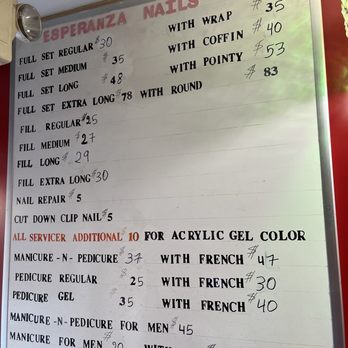 ESPERANZA NAILS
FULL SET REGULAR $30 WITH WRAP $35
FULL SET MEDIUM $35 WITH COFFIN $40
FULL SET LONG $48 WITH POINTY $53
FULL SET EXTRA LONG $78 WITH ROUND $83
FILL REGULAR $25
FILL MEDIUM $27
FILL LONG $29
FILL EXTRA LONG $30
NAIL REPAIR $5
CUT DOWN CLIP NAIL $5
ALL SERVICER ADDITIONAL $10 FOR ACRYLIC GEL COLOR
MANICURE -N- PEDICURE $37 WITH FRENCH $47
PEDICURE REGULAR $25 WITH FRENCH $30
PEDICURE GEL $35 WITH FRENCH $40
MANICURE -N- PEDICURE FOR MEN $45
MANICURE FOR MEN